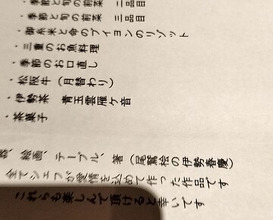 ・季節と旬の前菜 二品目
・季節と旬の前菜 三品目
・御糸米と命のブイヨンのリゾット
・三重のお魚料理
・季節のお口直し
・松阪牛(月替わり)
・伊勢茶 青玉雲雁ケ音
・茶菓子
絵画、テーブル、箸(尾鷲桧の伊勢春慶)
全てシェフが愛情を込めて作った作品です
これらも楽しんで頂けると幸いです